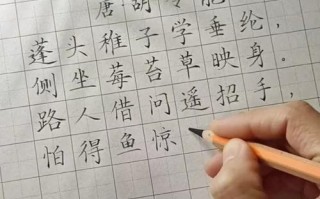 唐·胡令能
蓬头稚子学垂纶，
侧坐莓苔草映身。
路人借问遥招手，
怕得鱼惊